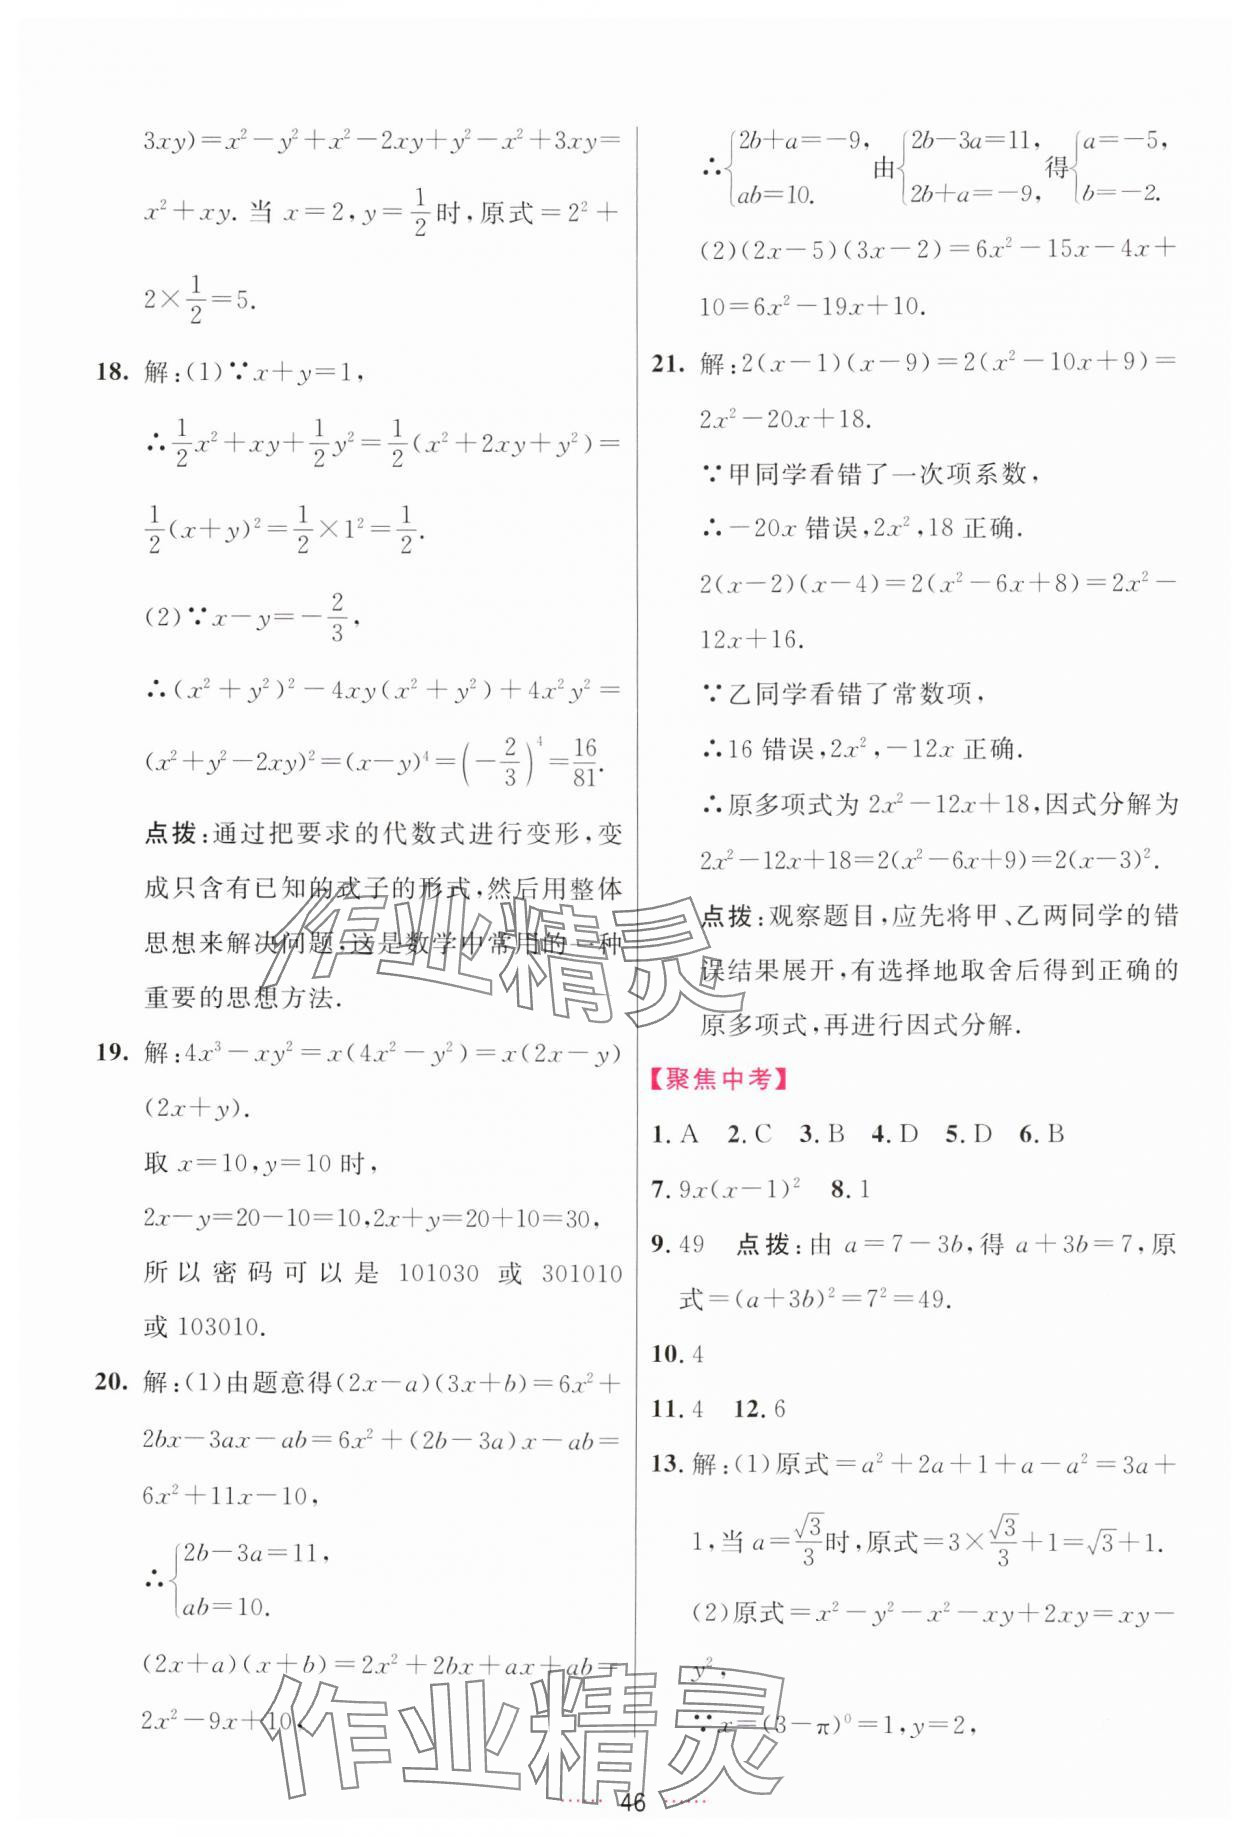 3xy)=x²-y²+x²-2xy+y²-x²+3xy=
x²+xy. 当 x=2,y=1/2时,原式=2²+
2×1/2=5.
18. 解:(1)∵x+y=1,
∴1/2x²+xy+1/2y²=1/2(x²+2xy+y²)=
1/2(x+y)²=1/2×1²=1/2.
(2)∵x-y=-2/3,
∴(x²+y²)²-4xy(x²+y²)+4x²y²=
(x²+y²-2xy)²=(x-y)⁴=(-2/3)⁴=16/81.
点拨:通过把要求的代数式进行变形,变
成只含有已知的式子的形式,然后用整体
思想来解决问题,这是数学中常用的一种
重要的思想方法.
19. 解:4x³-xy²=x(4x²-y²)=x(2x-y)
(2x+y).
取 x=10,y=10 时,
2x-y=20-10=10,2x+y=20+10=30,
所以密码可以是 101030 或 301010
或 103010.
20. 解:(1)由题意得(2x-a)(3x+b)=6x²+
2bx-3ax-ab=6x²+(2b-3a)x-ab=
6x²+11x-10,
∴{2b-3a=11,
ab=10.
(2x+a)(x+b)=2x²+2bx+ax+ab=
2x²-9x+10,
∴{2b+a=-9, ab=10. 由{2b-3a=11, 2b+a=-9, 得{a=-5, b=-2.
(2)(2x-5)(3x-2)=6x²-15x-4x+
10=6x²-19x+10.
21. 解:2(x-1)(x-9)=2(x²-10x+9)=
2x²-20x+18.
∵甲同学看错了一次项系数,
∴-20x 错误,2x²,18 正确.
2(x-2)(x-4)=2(x²-6x+8)=2x²-
12x+16.
∵乙同学看错了常数项,
∴16 错误,2x²,-12x 正确.
∴原多项式为 2x²-12x+18,因式分解为
2x²-12x+18=2(x²-6x+9)=2(x-3)².
点拨:观察题目,应先将甲、乙两同学的错
误结果展开,有选择地取舍后得到正确的
原多项式,再进行因式分解.
【聚焦中考】
1. A 2. C 3. B 4. D 5. D 6. B
7. 9x(x-1)² 8. 1
9. 49 点拨:由 a=7-3b,得 a+3b=7,原
式=(a+3b)²=7²=49.
10. 4
11. 4 12. 6
13. 解:(1)原式=a²+2a+1+a-a²=3a+
1,当 a=√3/3时,原式=3×√3/3+1=√3+1.
(2)原式=x²-y²-x²-xy+2xy=xy-
y²,
∵x=(3-π)⁰=1,y=2,
作业精灵
作业精灵
46